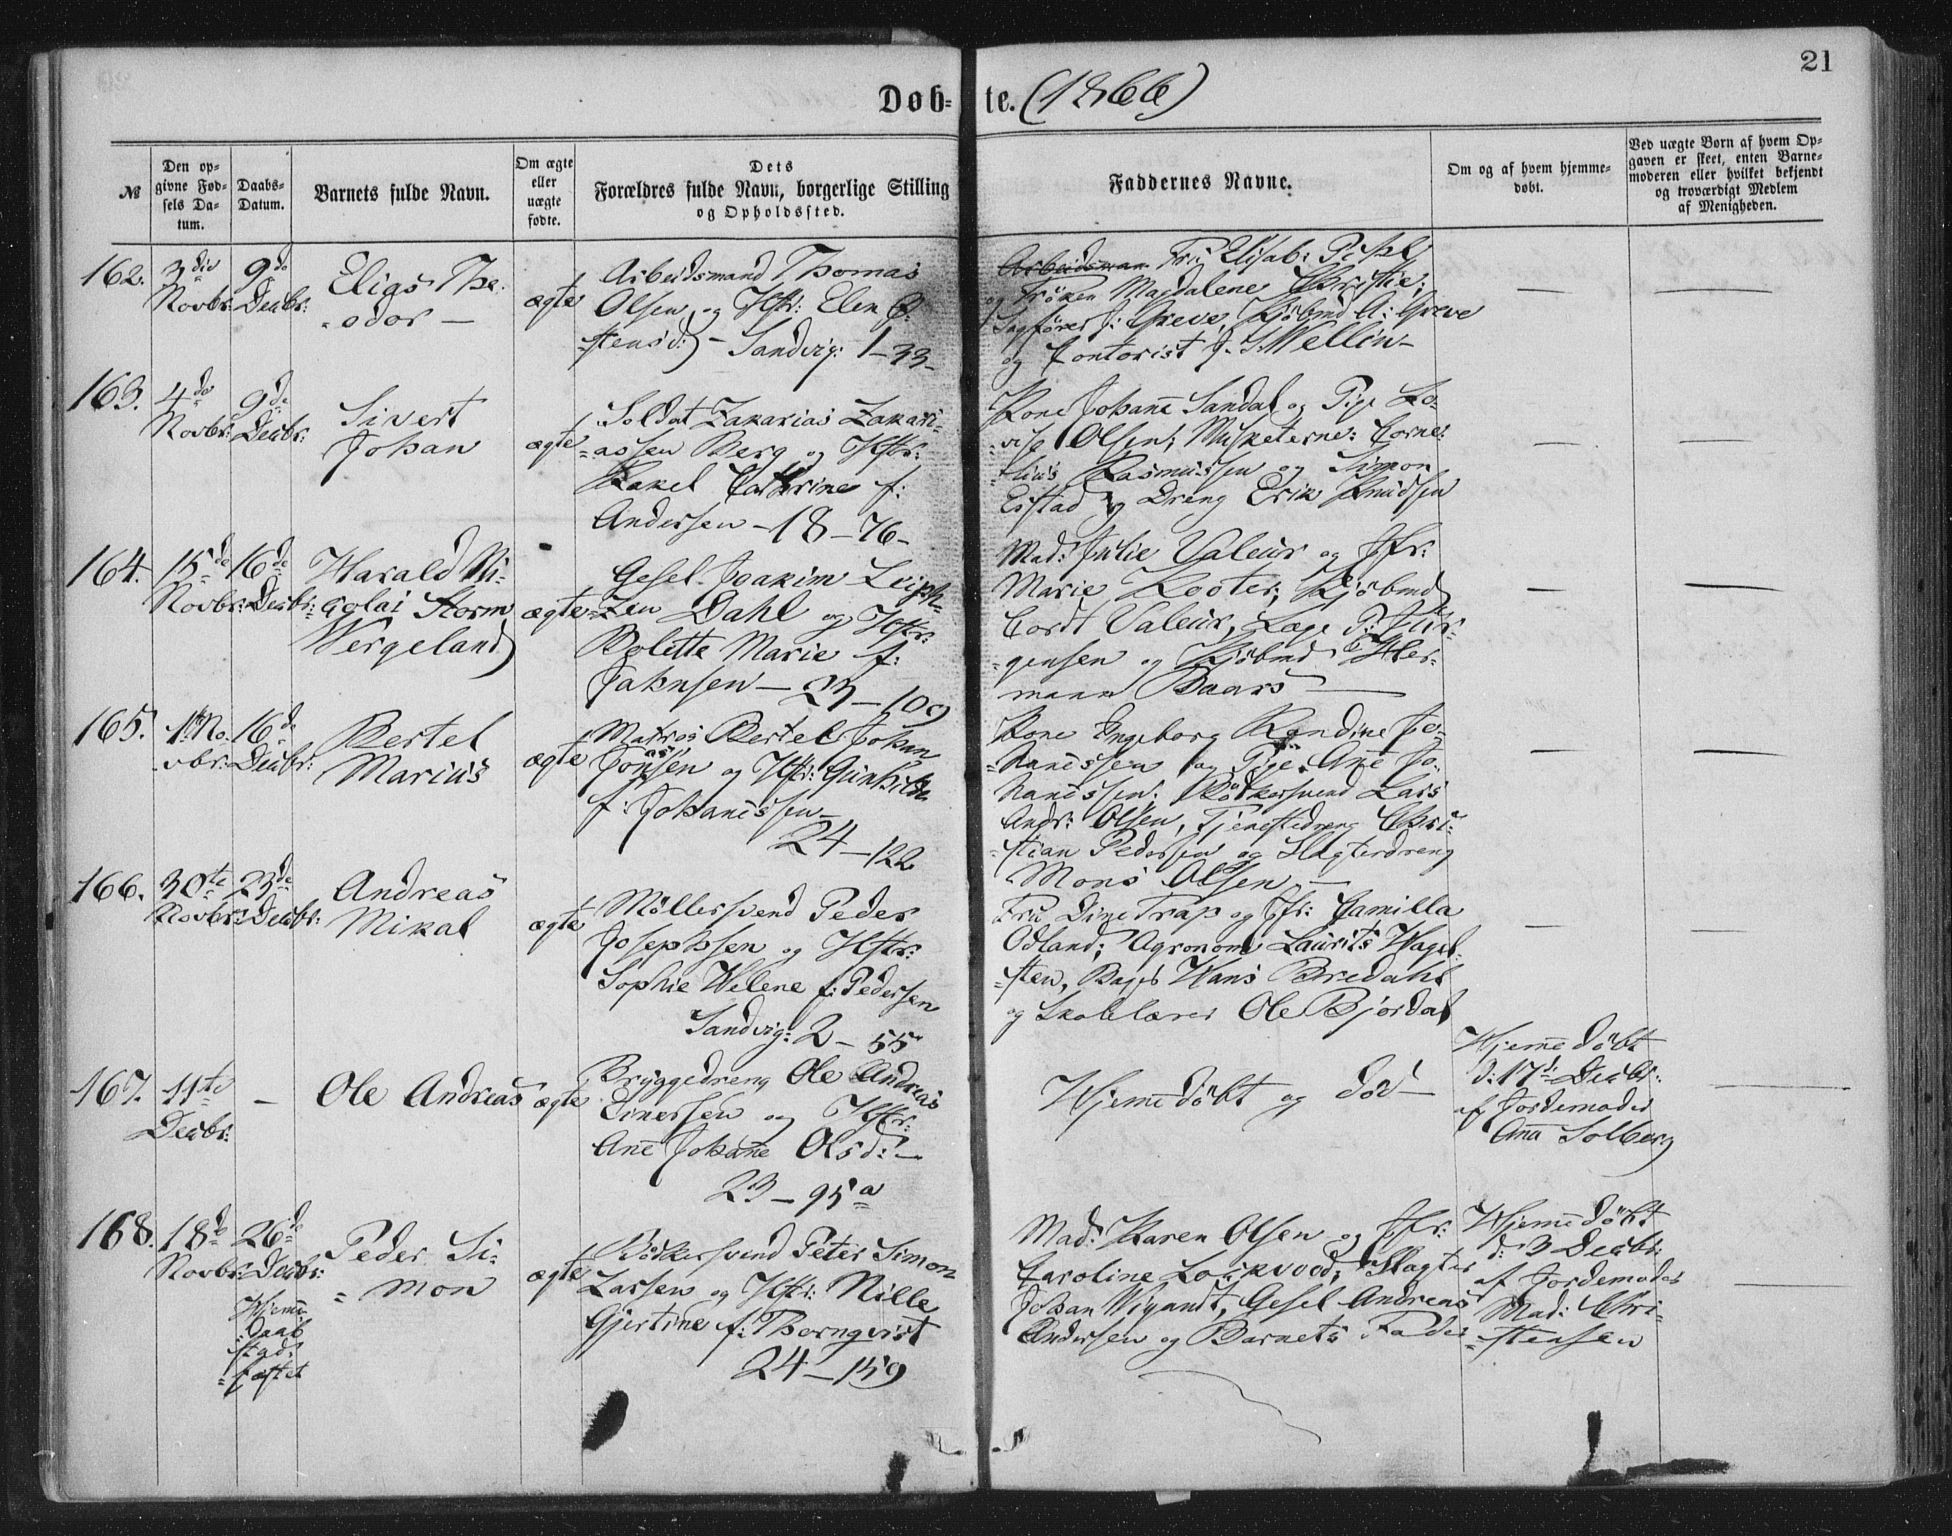 21
Døb-te. (1866)
№
Den op-
givne Fød-
sels Da-
tum.
Daabs-
Datum.
Barnets fulde Navn.
Om ægte
eller
uægte
fødte.
Dets
Forældres fulde Navn, borgerlige Stilling
og Opholdssted.
Faddernes Navne.
Om og af hvem hjemme-
døbt.
Ved uægte Børn af hvem Op-
gaven er skeet, enten Barne-
moderen eller hvilket bekjendt
og troværdigt Medlem
af Menigheden.
162.
3die
Novbr:
9de
Decbr:
Elias The-
odor —
ægte
Arbeidsmand Thomas
Olsen og Hstr: Elen
stensd:) — Sandvig: 1–33–
Arbeidsman Fru Elisab:
og Frøken Magdalene Christie;
Sagfører J: Greve, Kjøbmd A: Greve
og Contorist J. S. Wellin–
—
—
163.
4de
Novbr:
9de
Decbr:
Sivert
Johan
ægte
Soldat Zakarias Zakari-
assen Berg og Hstr:
Rakel Cathrine f:
Andersen – 18–76–
Kone Johane Sandal og Pige Lo-
vise Olsen; Musketerne: Corne-
lius Rasmussen og Simon
Eistad og Dreng Erik Knudsen
—
—
164.
15de
Novbr:
16de
Decbr:
Harald Ni-
colai Storm
Wergeland
ægte
Gesel. Joakim
zen Dahl og Hstr:
Bolette Marie f:
Jahnsen – 23–109
Mad: Julie Valeur og Jfr:
Marie Kooter; Kjøbmd
Cordt Valeur, Læge P: Jür-
gensen og Kjøbmd Her-
mann Baars —
—
—
165.
1ste No-
vbr:
16de
Decbr:
Bertel
Marius
ægte
Matros Bertel Johan
Jonsen og Hstr: Gunhilde
f: Johanessen –
24–122
Kone Ingeborg Randine Jo-
hanessen og Pige Ane Jo-
hanessen; Bødkersvend Lars
Andr: Olsen, Tjenestedreng Chri-
stian Pedersen og Slagterdreng
Mons Olsen —
—
—
166.
30te
Novbr:
23de
Decbr:
Andreas
Mikal
ægte
Møllersvend Peder
Josephsen og Hstr:
Sophie Helene f: Pedersen
Sandvig: 2–55
Fru Dine Trap og Jfr: Camilla
Odland; Agronom Laurits Hagel-
sten, Hans Bredahl
og Skolelærer Ole Bjørdal
—
—
167.
11te
Decbr:
—
Ole Andreas
ægte
Bryggedreng Ole Andreas
Einersen og Hstr:
Ane Johane Olsd: —
23–95a
Hjemedøbt og død —
Hjemedøbt
d: 17de Decbr:
af Jordemoder
Ana Solberg
—
168.
18de
Novbr:
26de
Decbr:
Hjeme-
Daab
stad-
fæstet
Peder Si-
mon
ægte
Bødkersvend Peter Simon
Larsen og Hstr: Nille
Gjertine f: Thornqvist
24–159
Mad: Karen Olsen og Jfr:
Caroline Lockvood; Slagter
Johan Wigandt, Gesel Andreas
Andersen og Barnets Fader
Hjemedøbt
d: 3 Decbr:
af Jordemoder
Mad: Chri-
stensen
—